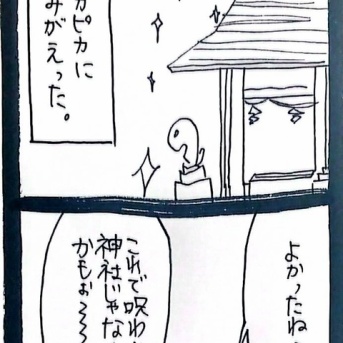 カピカに
みがえった。
よかったね
これで呪わ
神社じゃな
かもぉ〜〜